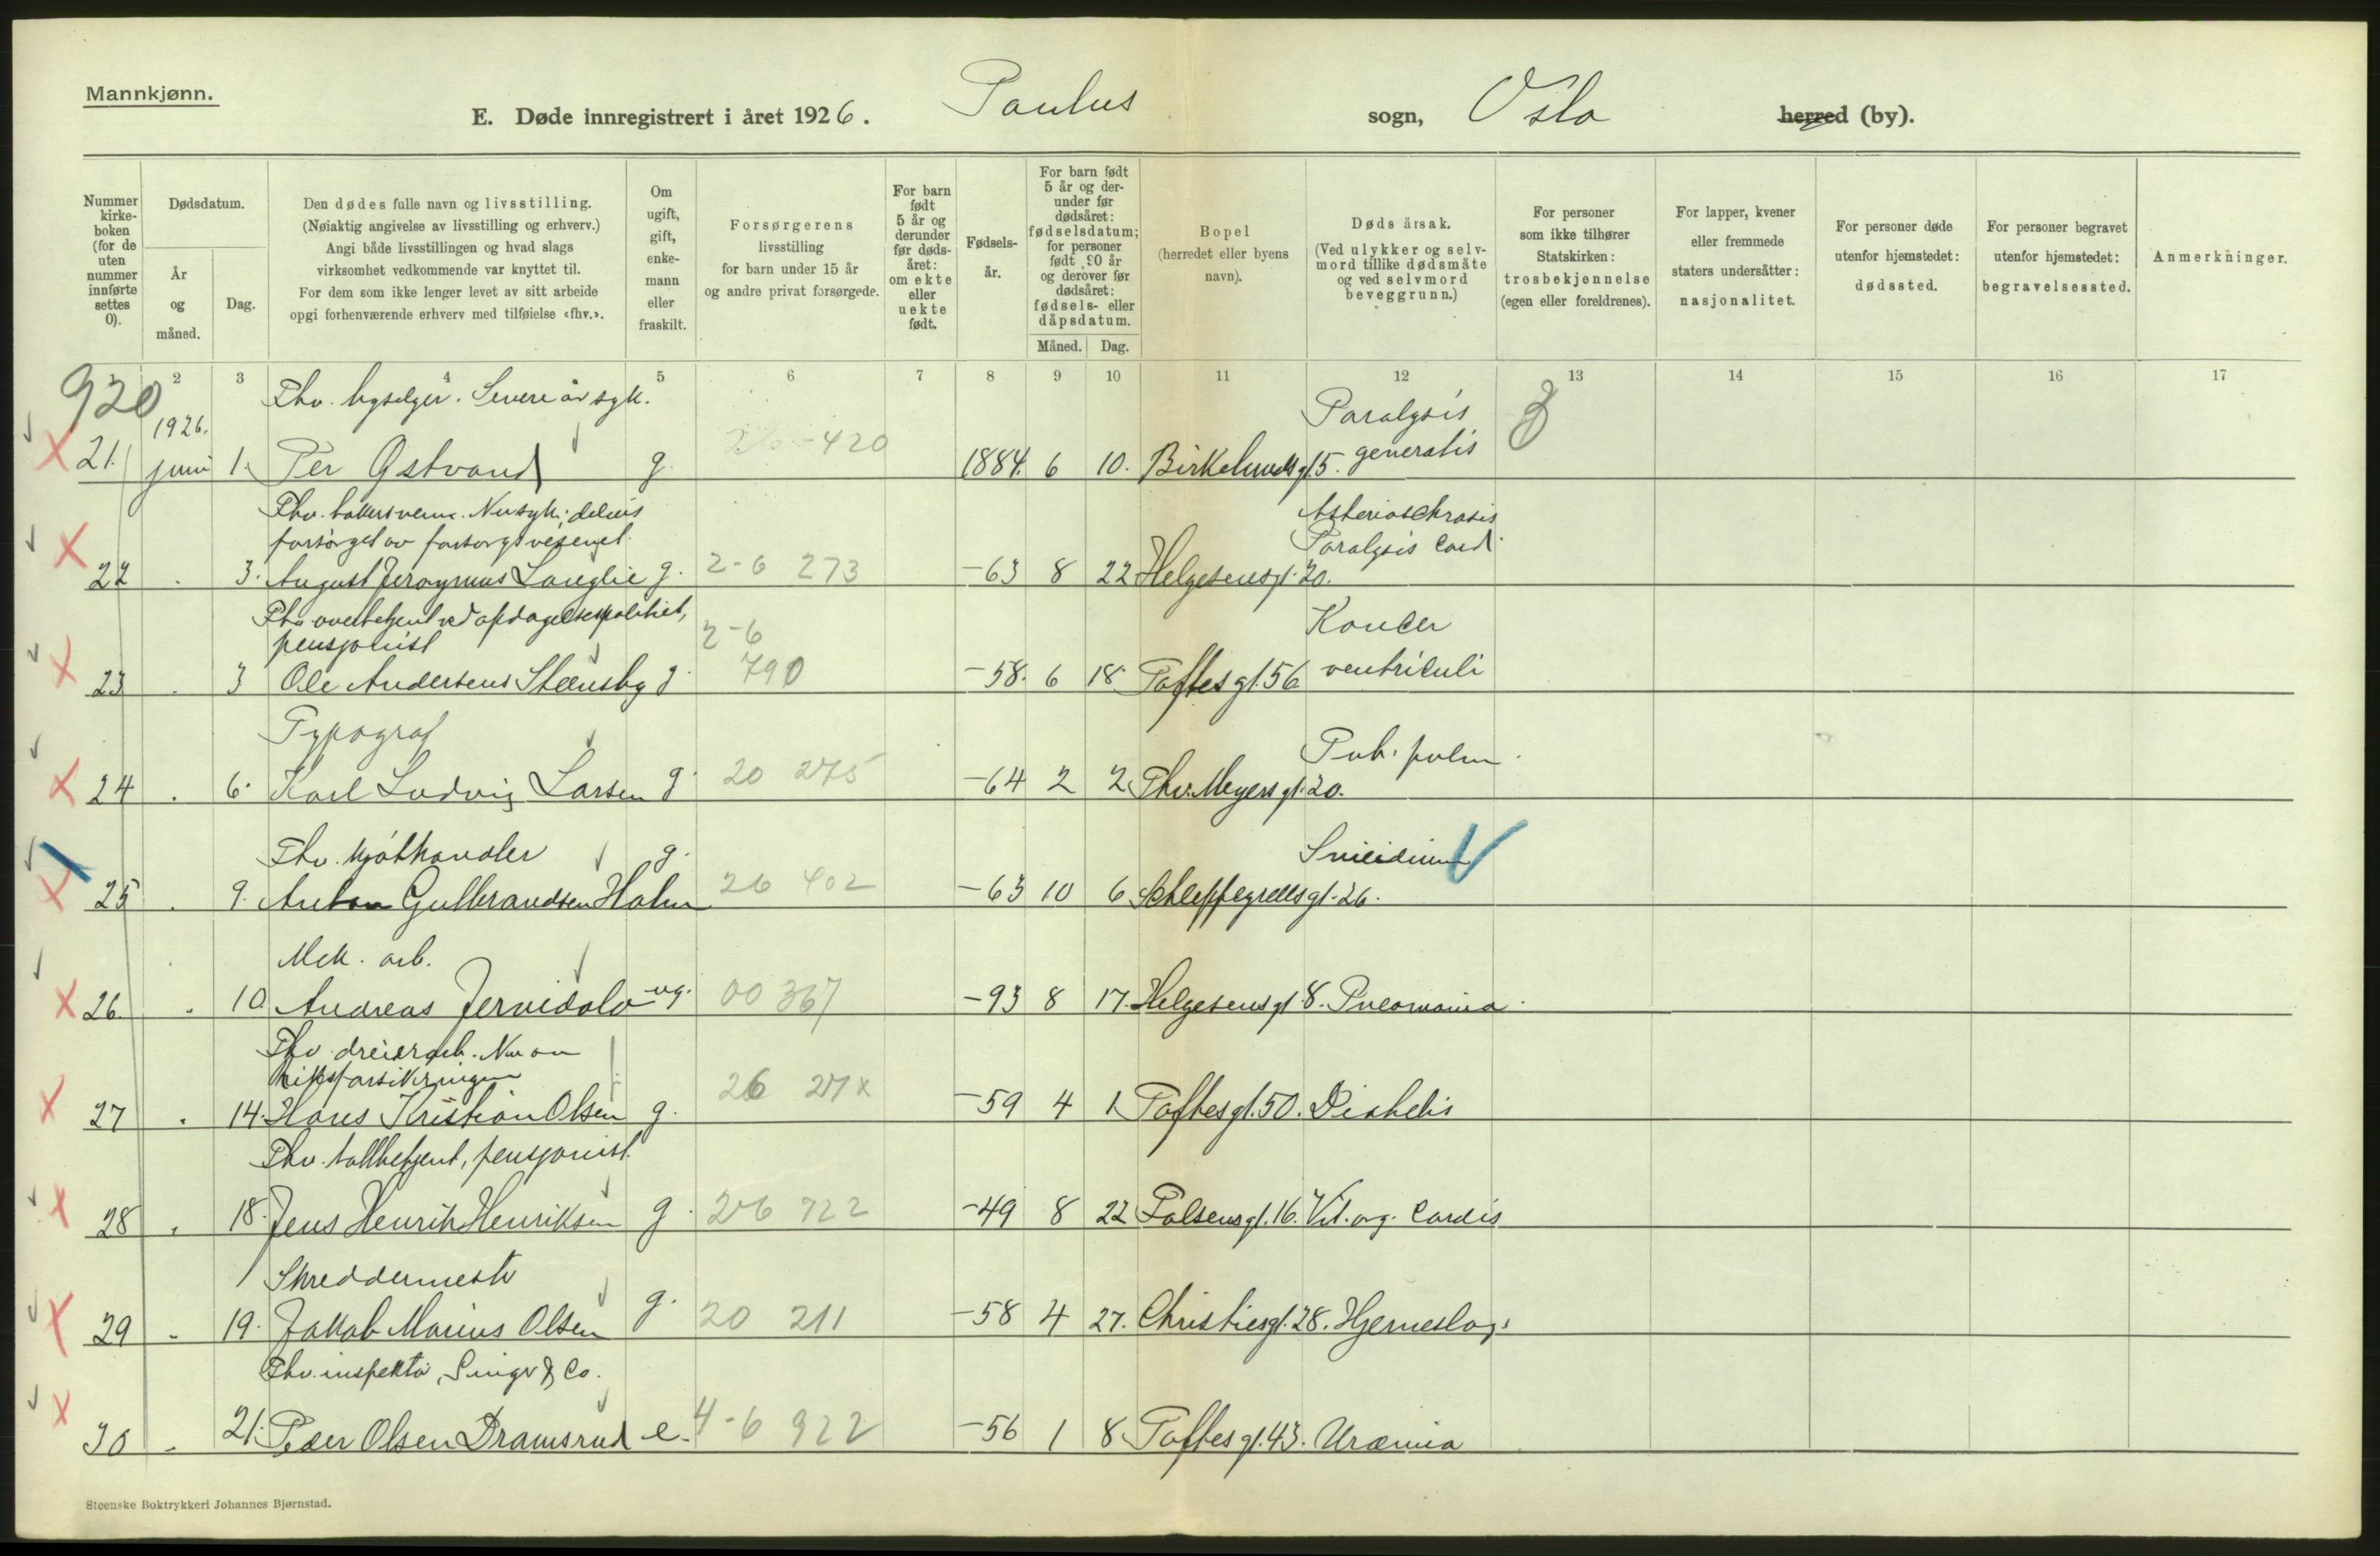 Mannkjønn.
E. Døde innregistrert i året 1926. Paulus sogn, Oslo herred (by).
Nummer kirke-boken (for de uten nummer innførte settes 0).
Dødsdatum.
År og måned.
Dag.
Den dødes fulle navn og livsstilling.
(Nøiaktig angivelse av livsstilling og erhverv.)
Angi både livsstillingen og hvad slags
virksomhet vedkommende var knyttet til.
For dem som ikke lenger levet av sitt arbeide
opgi forhenværende erhverv med tilføielse «fhv.».
Om ugift, gift, enke-mann eller fraskilt.
Forsørgerens
livsstilling
for barn under 15 år
og andre privat forsørgede.
For barn født 5 år og derunder før døds-året: om ekte eller uekte født.
Fødsels-år.
For barn født 5 år og der-under før dødsåret: fødselsdatum; for personer født 90 år og derover før dødsåret: fødsels- eller dåpsdatum.
Måned. Dag.
Bopel
(herredet eller byens
navn).
Dødsårsak.
(Ved ulykker og selv-
mord tillike dødsmåte
og ved selvmord
beveggrunn.)
For personer
som ikke tilhører
Statskirken:
trosbekjennelse
(egen eller foreldrenes).
For lapper, kvener
eller fremmede
staters undersåtter:
nasjonalitet.
For personer døde
utenfor hjemstedet:
dødssted.
For personer begravet
utenfor hjemstedet:
begravelsessted.
Anmerkninger.
1 2 3 4 5 6 7 8 9 10 11 12 13 14 15 16 17
920
Fhv. Senere år syk.
1926. Paralysis
21. juni 1. Per Østvand g. 420 1884. 6 10. Birkelundsgt. 5. generalis
Fhv. Nu syk; delvis
forsørget av forsorgsvesenet.
Paralysis Card.
22 . 3. August Jeroymus Langlie g. 2-6 273 -63 8 22 Helgesensgt. 20.
Fhv. overbetjent ved opdagelsespolitiet,
pensjonist 2-6 Kancer
23 . 3 Ole Andersens Steensby g. 790 -58. 6 18. Toftesgt. 56 ventriculi
Typograf
Tub. pulm.
24 . 6. Karl Ludvig Larsen g. 20 275 -64 2 2. Thv. Meyersgt. 20.
Fhv. kjøthandler g. Suicidium
25 . 9. Anton Gulbrandsen Holm 26 402 -63 10 6 Schleppegrellsgt. 26.
Mek. arb.
26 . 10. Andreas Jervidalo ug. 00 367 -93 8 17. Helgesensgt. 8. Pneomonia.
Fhv. dreierarb. Nu on
27 . 14. Hans Kristian Olsen g. 26 27x -59 4 1. Toftesgt. 50. Diabetis
Fhv. tollbetjent, pensjonist.
28 . 18. Jens Henrik Henriksen g. 26 722 -49 8 22 Falsensgt. 16. Vit. org. Cordis
Skreddermestr
29 . 19. Jakob Marius Olsen g. 20 211 -58 4 27. Christiesgt. 28. Hjerneslag.
Fhv. inspektør, Singer & Co.
30 . 21. Peder Olsen Dramsrud e. 4-6 922 -56 1 8. Toftesgt. 43. Uræmia
Steenske Boktrykkeri Johannes Bjørnstad.